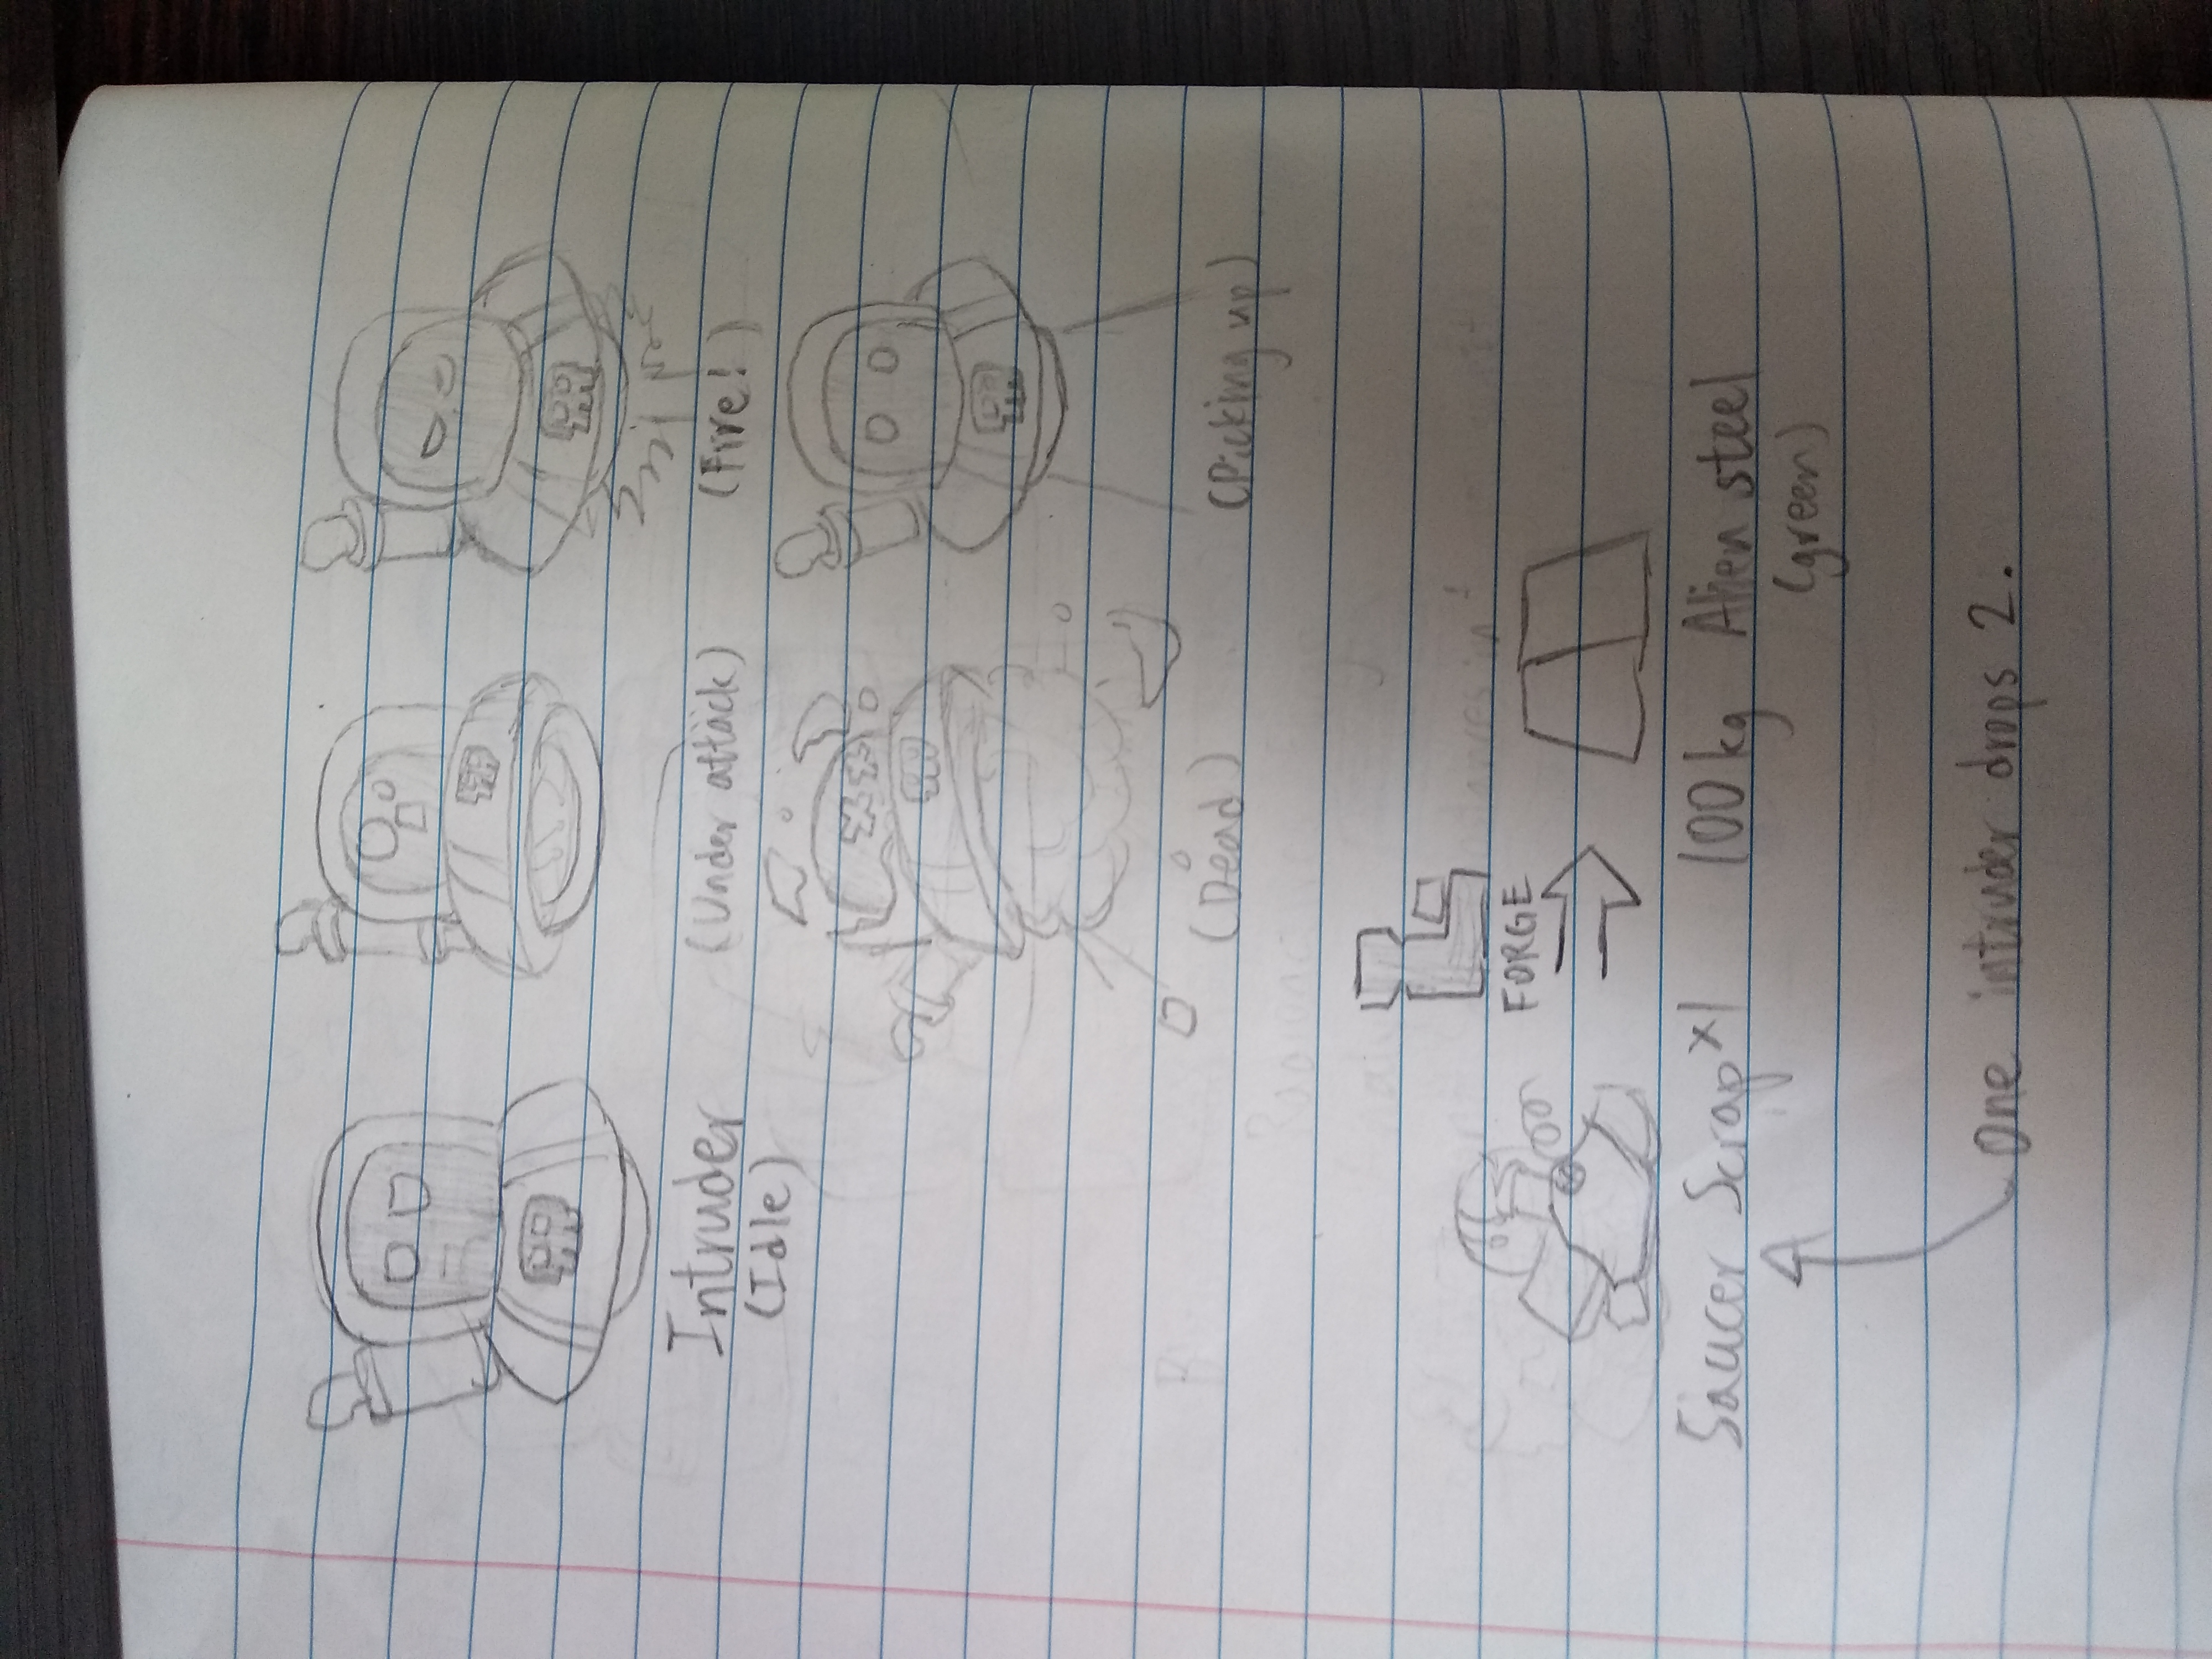 Intruder
(Idle)
(Under attack)
(Fire!)
(Dead)
(Picking up)
FORGE
Saucer Scrap x1
100 kg Alien steel
(green)
One intruder drops 2.